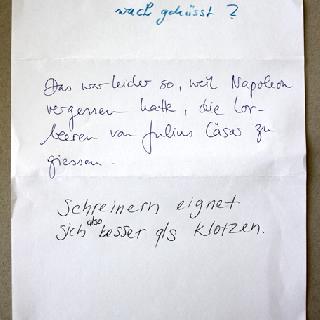 wach geküsst?
Das war leider so, weil Napoleon
vergessen hatte, die Lor-
beeren von Julius Cäsar zu
giessen.
Schreinern eignet
sich also besser als Klotzen.